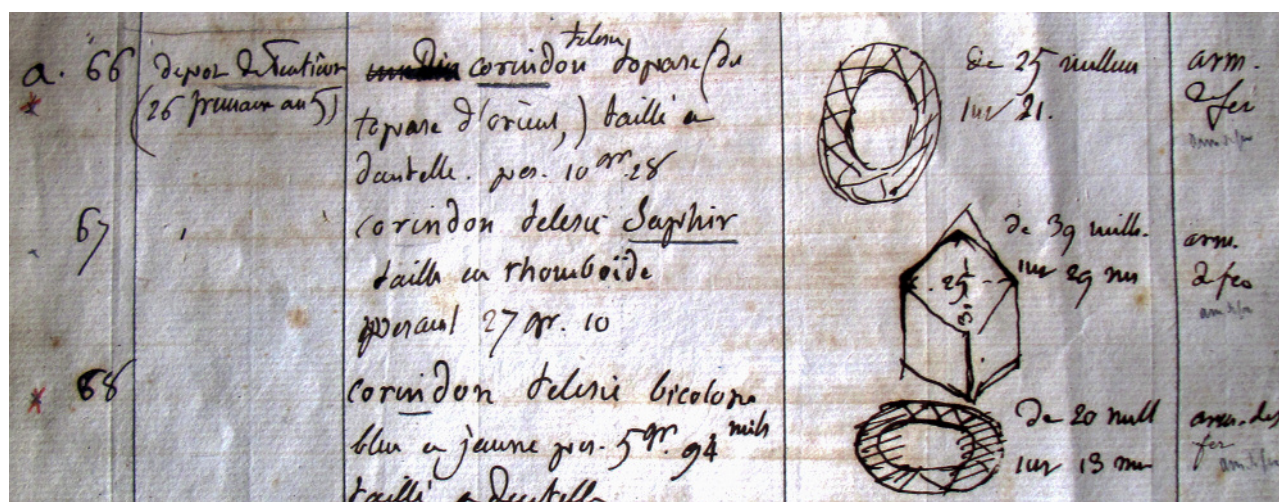 a. 66 depot de
(26 frimaire an 5)
corindon telesie topase (de
topase d'orient,) taillé a
dantelle. pes. 10 gr. 28
de 25 millem
sur 21.
arm.
d fer
67
corindon telesie Saphir
taillé en rhomboïde
pesant 27 gr. 10
25
31
de 39 mill.
sur 29 m
arm.
d fer
68
corindon telesie bicolore
bleu et jaune pes. 5 gr. 94 mills
taillé a dentelle
de 20 mill
sur 13 m
arm. des
fer